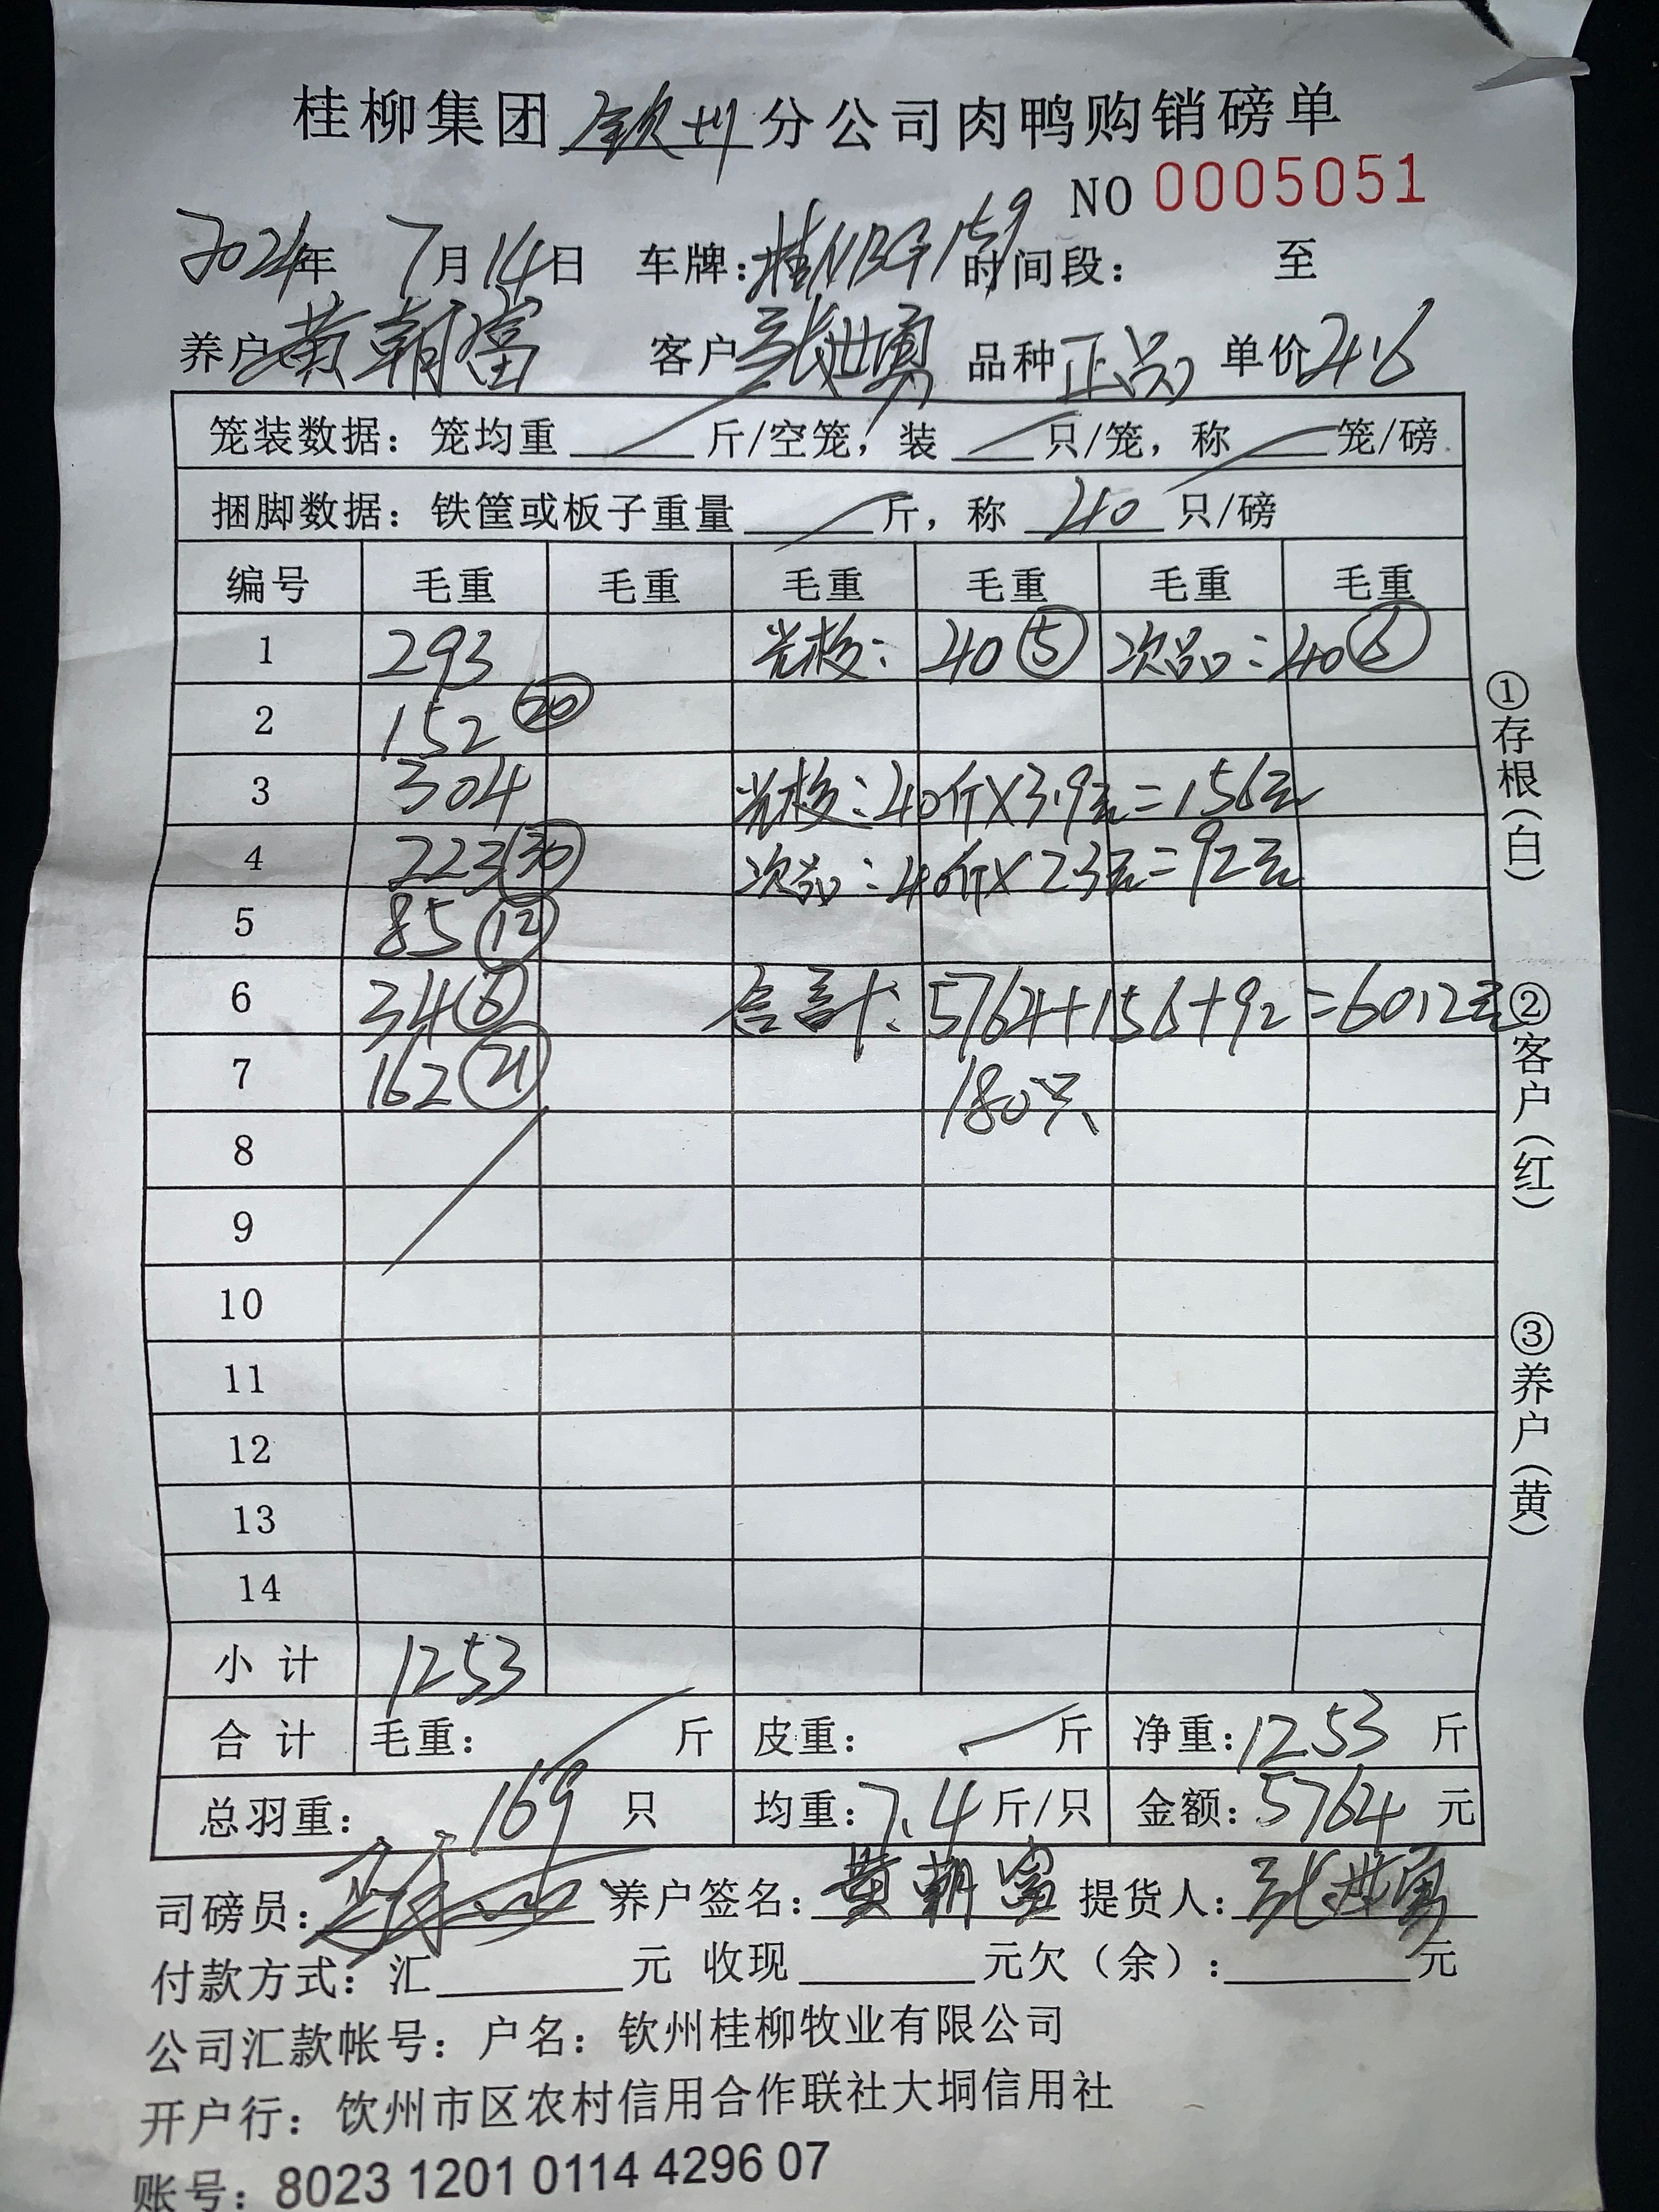 桂柳集团 钦州 分公司肉鸭购销磅单
NO 0005051
2024年 7月14日 车牌:桂NBG159 时间段: 至
养户 黄朝富 客户 张世勇 品种 正品 单价 4.6
笼装数据: 笼均重 斤/空笼, 装 只/笼, 称 笼/磅.
捆脚数据: 铁筐或板子重量 斤, 称 40 只/磅
编号 毛重 毛重 毛重 毛重 毛重 毛重
1 293 40 ⑤ 次品: 40 ⑥
2 152 ⑳
3 304 40斤×3.9元=156元
4 223 ㉚ 次品: 40斤×2.3元=92元
5 85 ⑫
6 34 ⑥ 合计: 5764+156+92=6012元
7 162 ㉑ 180只
8
9
10
11
12
13
14
小计 1253
合计 毛重: 斤 皮重: 斤 净重: 1253 斤
总羽重: 169 只 均重: 7.4 斤/只 金额: 5764 元
司磅员: 养户签名: 黄朝富 提货人: 张世勇
付款方式: 汇 元 收现 元欠(余): 元
公司汇款帐号: 户名: 钦州桂柳牧业有限公司
开户行: 饮州市区农村信用合作联社大垌信用社
账号: 8023 1201 0114 4296 07
①存根(白)
②客户(红)
③养户(黄)